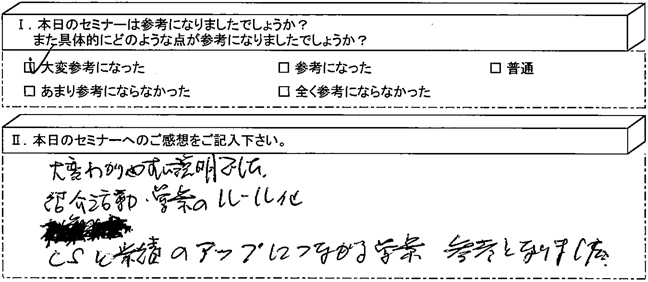 Ⅰ．本日のセミナーは参考になりましたでしょうか？
また具体的にどのような点が参考になりましたでしょうか？
☑ 大変参考になった □ 参考になった □ 普通
□ あまり参考にならなかった □ 全く参考にならなかった
Ⅱ．本日のセミナーへのご感想をご記入下さい。
大変わかりやすい説明でした。
紹介活動・営業のルール化
CSと業績のアップにつながる営業 参考となりました。